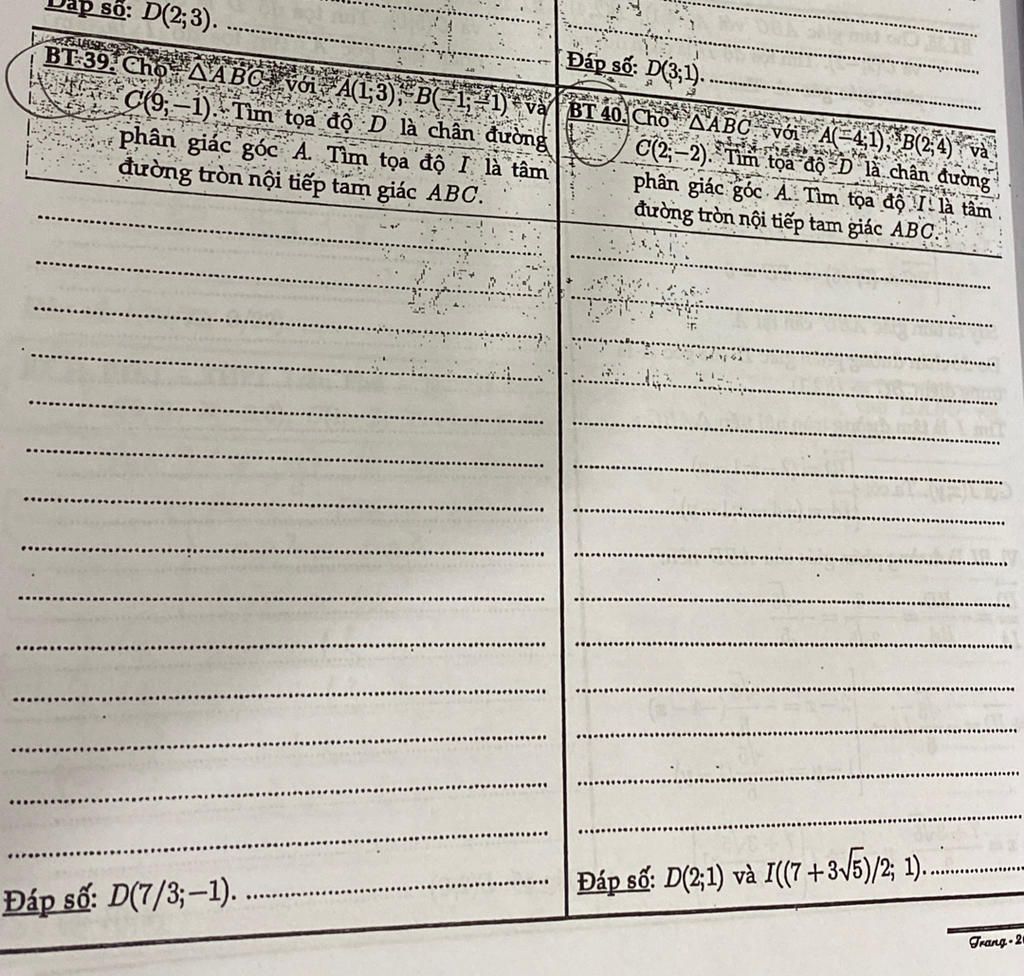 Đáp số: D(2;3).
BT 39. Cho △ABC với A(1;3), B(−1;−1) và
C(9;−1). Tìm tọa độ D là chân đường
phân giác góc A. Tìm tọa độ I là tâm
đường tròn nội tiếp tam giác ABC.
Đáp số: D(7/3;−1).
Đáp số: D(3;1).
BT 40. Cho △ABC với A(−4;1), B(2;4) và
C(2;−2). Tìm tọa độ D là chân đường
phân giác góc A. Tìm tọa độ I là tâm
đường tròn nội tiếp tam giác ABC.
Đáp số: D(2;1) và I((7+3√5)/2; 1).